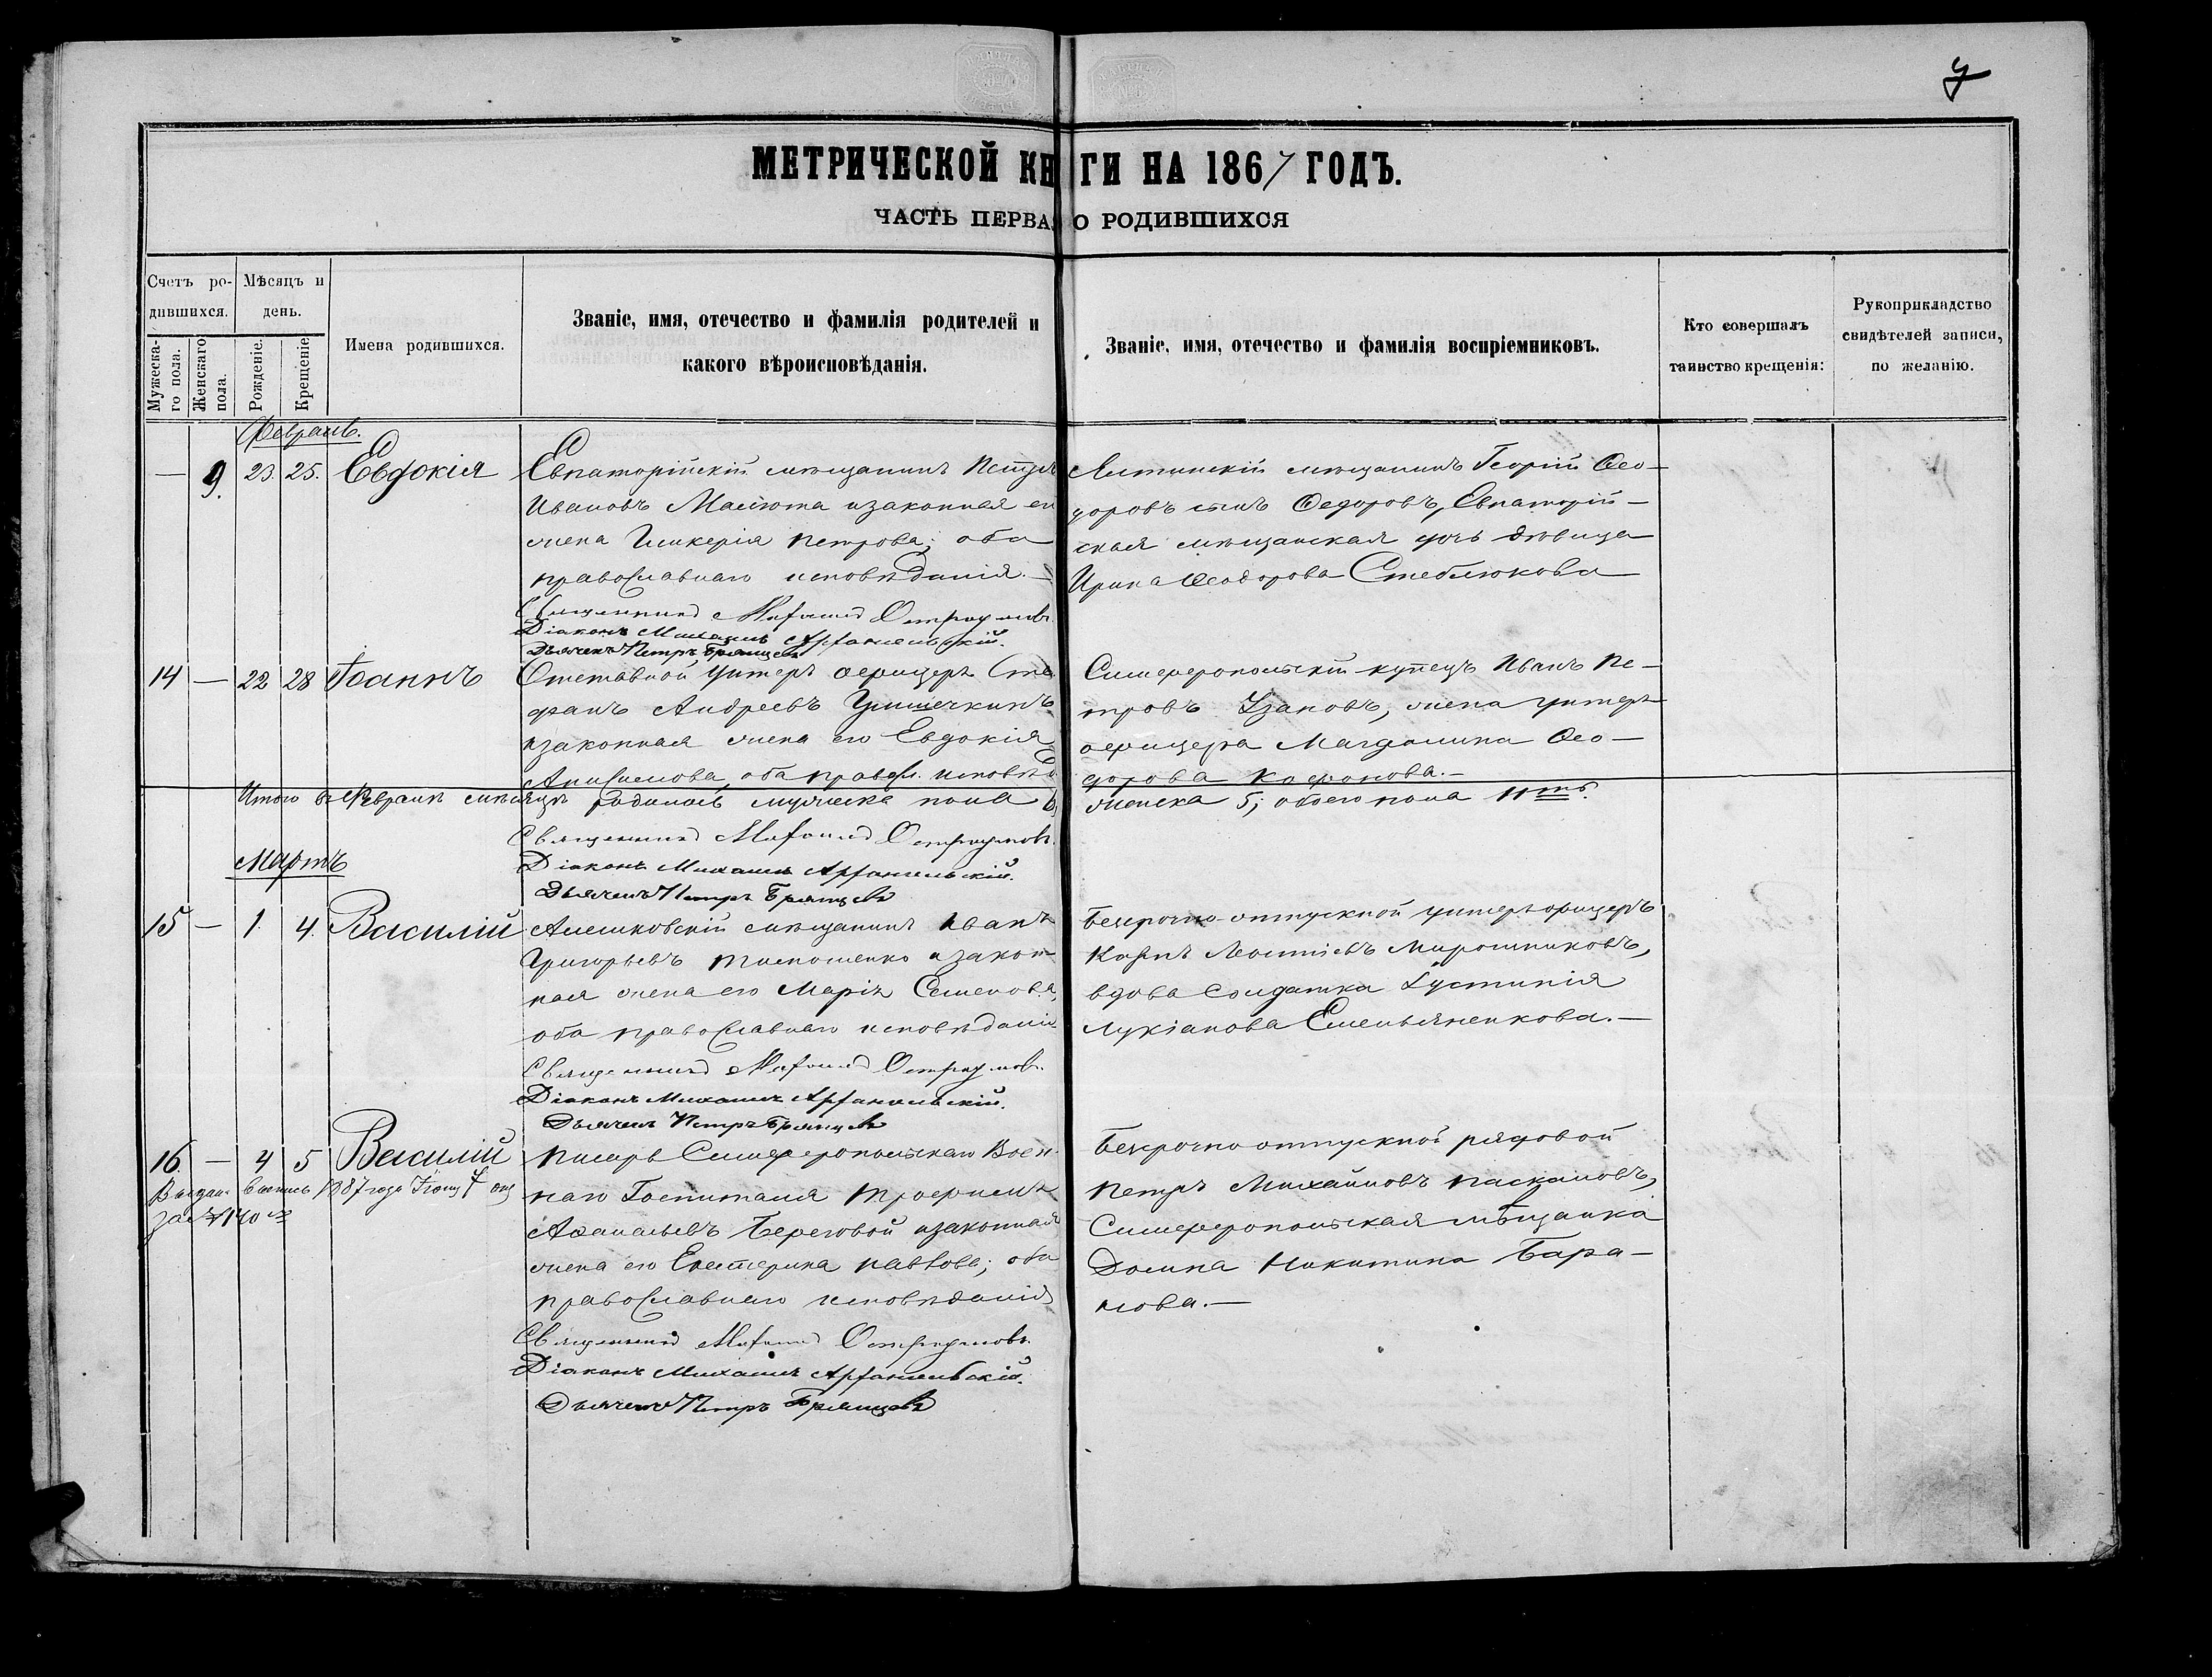 7
МЕТРИЧЕСКОЙ КНИГИ НА 1867 ГОДЪ.
ЧАСТЬ ПЕРВАЯ О РОДИВШИХСЯ
Счетъ родившихся.
Мужескаго пола.
Женскаго пола.
Мѣсяцъ и день.
Рожденіе.
Крещеніе
Имена родившихся.
Званіе, имя, отечество и фамилія родителей и
какого вѣроисповѣданія.
Званіе, имя, отечество и фамилія воспріемниковъ.
Кто совершалъ
таинство крещенія:
Рукоприкладство
свидѣтелей записи,
по желанію.
Февраль.
— 9. 23. 25. Евдокія
Евпаторійскій мѣщанинъ Петръ
Ивановъ Малюта и законная его
жена Гликерія Петрова; оба
православнаго исповѣданія.—
Священникъ Остроумовъ.
Діаконъ Михаилъ Архангельскій.
Дьячекъ Петръ Брянцевъ
Ялтинскій мѣщанинъ Георгій Ѳео-
доровъ сынъ Федоровъ, Евпаторій-
ская мѣщанская дочь дѣвица
Ирина Ѳеодорова Стеблюкова
14 — 22 28 Іоаннъ
Отставной унтеръ офицеръ Сте
фанъ Андреевъ Гришечкинъ
и законная жена его Евдокія
Анисимова, оба правосл. исповѣд
Симферопольскій купецъ Иванъ Пе-
тровъ Узановъ, жена унтеръ
офицера Магдалина Ѳео-
дорова Кафанова.—
Итого въ Февралѣ мѣсяцѣ родилось мужеска пола 6,
женска 5; обоего пола 11ть.
Священникъ Остроумовъ.
Діаконъ Михаилъ Архангельскій.
Дьячекъ Петръ Брянцевъ
Мартъ
15 — 1. 4. Василій
Алешковскій мѣщанинъ Иванъ
Григорьевъ Тимошенко и закон-
ная жена его Марія Семенова,
оба православнаго исповѣданія
Священникъ Остроумовъ.
Діаконъ Михаилъ Архангельскій.
Дьячекъ Петръ Брянцевъ
Безсрочно-отпускной унтеръ офицеръ
Леонтіевъ Мирошниковъ,
вдова солдатка Іустинія
Лукіанова Емельяненкова.—
16. — 4 5 Василій
1887 года
за № 140
Писарь Симферопольскаго Воен-
наго Госпиталя Трофимъ
Аѳанасьевъ Береговой и законная
жена его Екатерина Павлова; оба
православнаго исповѣданія
Священникъ Остроумовъ.
Діаконъ Михаилъ Архангельскій.
Дьячекъ Петръ Брянцевъ
Безсрочно отпускной рядовой
Петръ Михайловъ Паскаловъ,
Симферопольская мѣщанка
Домна Никитина Бара-
нова.—